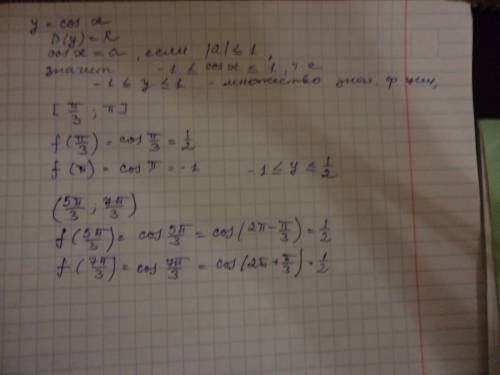 y = cos x
D(y) = R
cos x = a, если |a| ≤ 1,
значит -1 ≤ cos x ≤ 1, т.е
-1 ≤ y ≤ 1 - множество знач. ф-ции,
[π/3; π]
f(π/3) = cos π/3 = 1/2
f(π) = cos π = -1 -1 ≤ y ≤ 1/2
(5π/3; 7π/3)
f(5π/3) = cos 5π/3 = cos(2π - π/3) = 1/2
f(7π/3) = cos 7π/3 = cos(2π + π/3) = 1/2